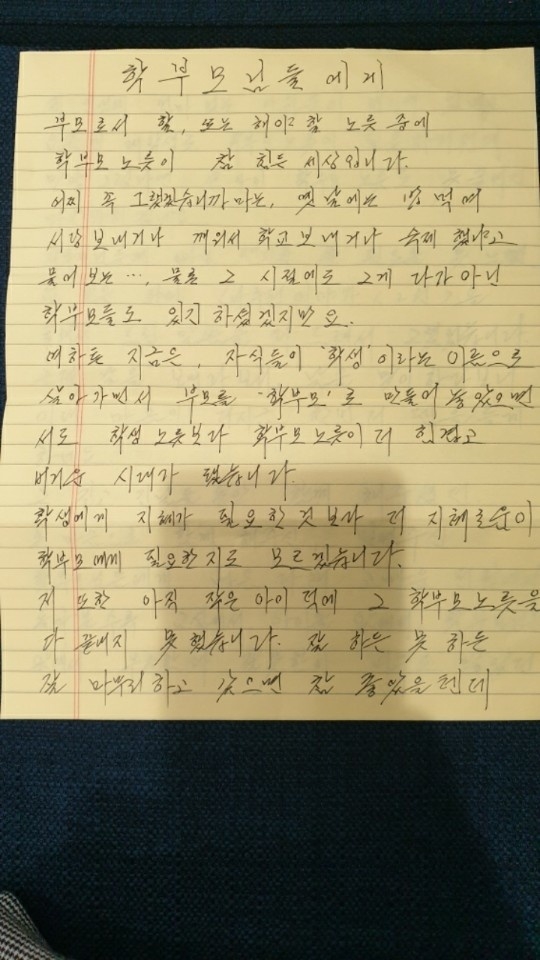 학부모님들에게
부모로서 할, 또는 해야 할 노릇 중에
학부모 노릇이 참 힘든 세상입니다.
어찌 꼭 그랬겠습니까마는, 옛날에는 밥 먹여
서당 보내거나 깨워서 학교 보내거나 숙제 했냐고
물어보는…, 물론 그 시절에도 그게 다가 아닌
학부모들도 있긴 하셨겠지만요.
지금은, 자식들이 '학생'이라는 이름으로
살아가면서 부모를 '학부모'로 만들어 놓았으면
서도 학생 노릇보다 학부모 노릇이 더 힘겹고
버거운 시대가 됐습니다.
학생에게 지혜가 필요한 것보다 더 지혜로움이
학부모에게 필요한지도 모르겠습니다.
저 또한 아직 작은 아이 덕에 그 학부모 노릇을
다 끝내지 못했습니다. 잘 하든 못 하든
잘 마무리하고 갔으면 참 좋았을텐데